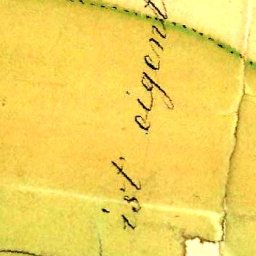 ist eigent